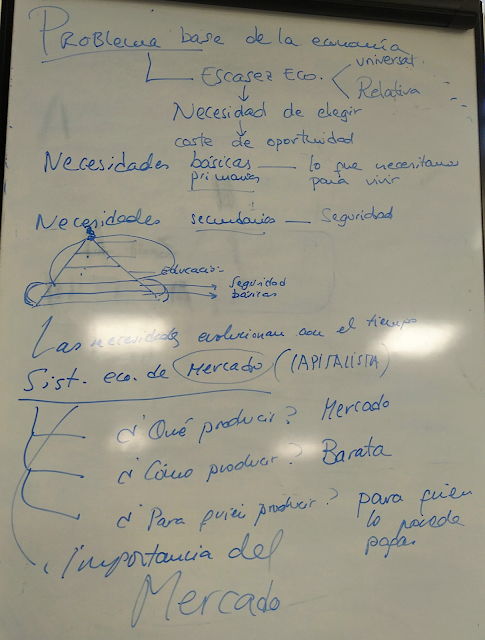 Problema base de la economía
Escasez Eco. universal
Relativa
Necesidad de elegir
coste de oportunidad
Necesidades básicas lo que necesitamos
primarias para vivir
Necesidades secundarias Seguridad
Educación
Seguridad
básicas
Las necesidades evolucionan con el tiempo
Sist. eco. de Mercado (CAPITALISTA)
¿Qué producir? Mercado
¿Cómo producir? Barata
¿Para quien producir? para quien
lo pueda
pagar
Importancia del
Mercado